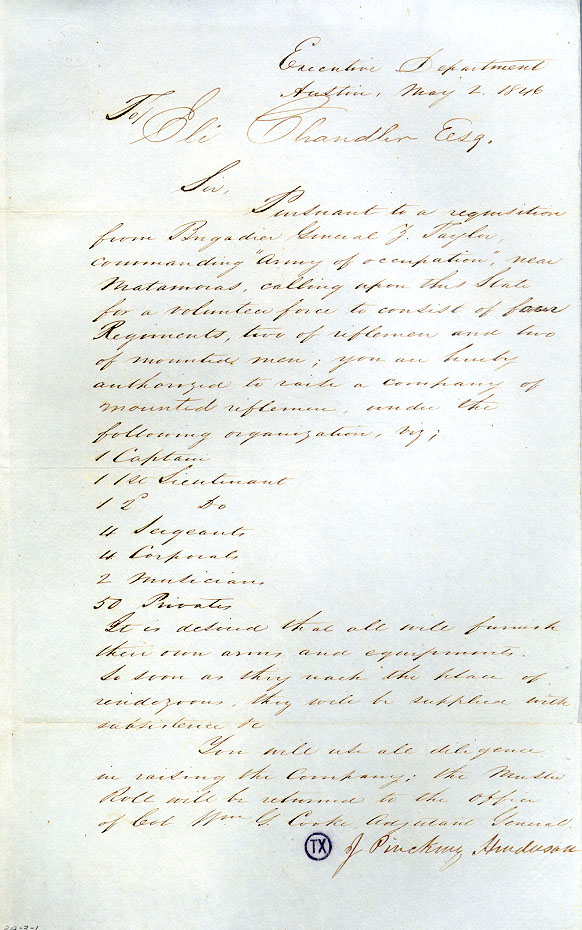 Executive Department
Austin, May 2. 1846
To/
Eli Chandler Esq.
Sir,
Pursuant to a requisition
from Brigadier General Z. Taylor,
commanding "Army of occupation", near
Matamoras, calling upon this State
for a volunteer force to consist of four
Regiments, two of riflemen and two
of mounted men; you are hereby
authorized to raise a company of
mounted riflemen, under the
following organization, viz;
1 Captain
1 1st Lieutenant
1 2d Do
4 Sergeants
4 Corporals
2 Musicians
50 Privates
It is desired that all will furnish
their own arms and equipments.
So soon as they reach the place of
rendezvous, they will be supplied with
subsistence &c
You will use all diligence
in raising the Company; the Muster
Roll will be returned to the office
of Col Wm G. Cooke Adjutant General.
TX
J Pinckney Henderson